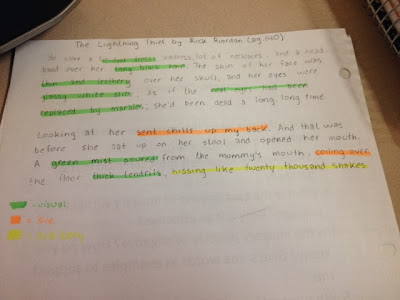 The Lightning Thief by Rick Riordan (pg.140)
She wore a dress, lot of necklaces, and a head-
band over her long black hair. The skin of her face was
thin and leathery over her skull, and her eyes were
glassy white slits, as if the real eyes had been
replaced by marbles; she'd been dead a long, long time.
Looking at her sent chills up my back. And that was
before she sat up on her stool and opened her mouth.
A green mist poured from the mommy's mouth, coiling over
the floor thick tendrils, hissing like twenty thousand snakes.
= visual